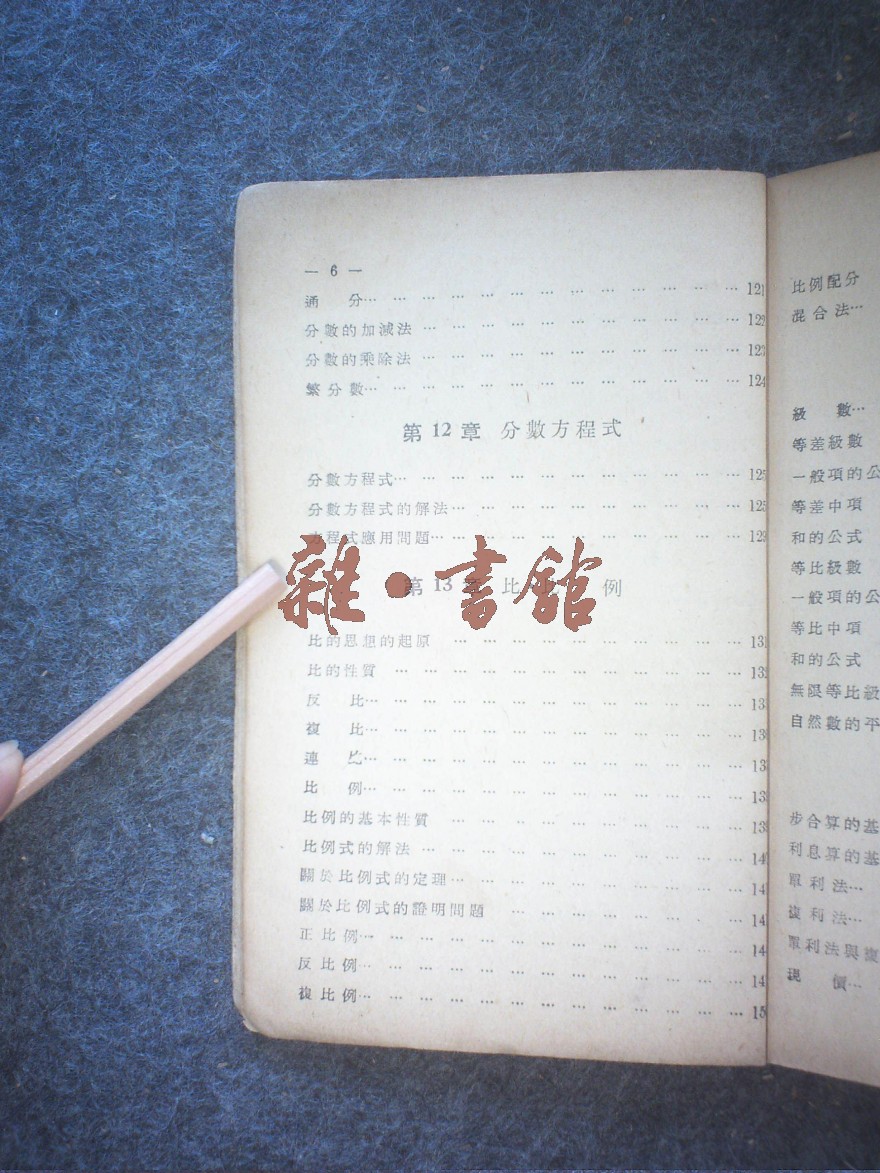 — 6 —
通 分… … … … … … … … … … … … … 121
分數的加減法 … … … … … … … … … … … 122
分數的乘除法 … … … … … … … … … … … 123
繁分數… … … … … … … … … … … … … 124
第12章 分數方程式
分數方程式… … … … … … … … … … … … 125
分數方程式的解法… … … … … … … … … … 125
方程式應用問題… … … … … … … … … … … 129
第13章 比 比 例
雜·書館
比的思想的起原 … … … … … … … … … … 13
比的性質 … … … … … … … … … … … … 13
反 比… … … … … … … … … … … … … 13
複 比… … … … … … … … … … … … … 13
連 比… … … … … … … … … … … … … 13
比 例… … … … … … … … … … … … … 13
比例的基本性質 … … … … … … … … … … 13
比例式的解法 … … … … … … … … … … … 14
關於比例式的定理… … … … … … … … … … 14
關於比例式的證明問題 … … … … … … … … 14
正比例… … … … … … … … … … … … … 14
反比例… … … … … … … … … … … … … 14
複比例… … … … … … … … … … … … … 15
比例配分
混合法…
級 數…
等差級數
一般項的公
等差中項
和的公式
等比級數
一般項的公
等比中項
和的公式
無限等比級
自然數的平
步合算的基
利息算的基
單利法…
複利法…
單利法與複
現 價…